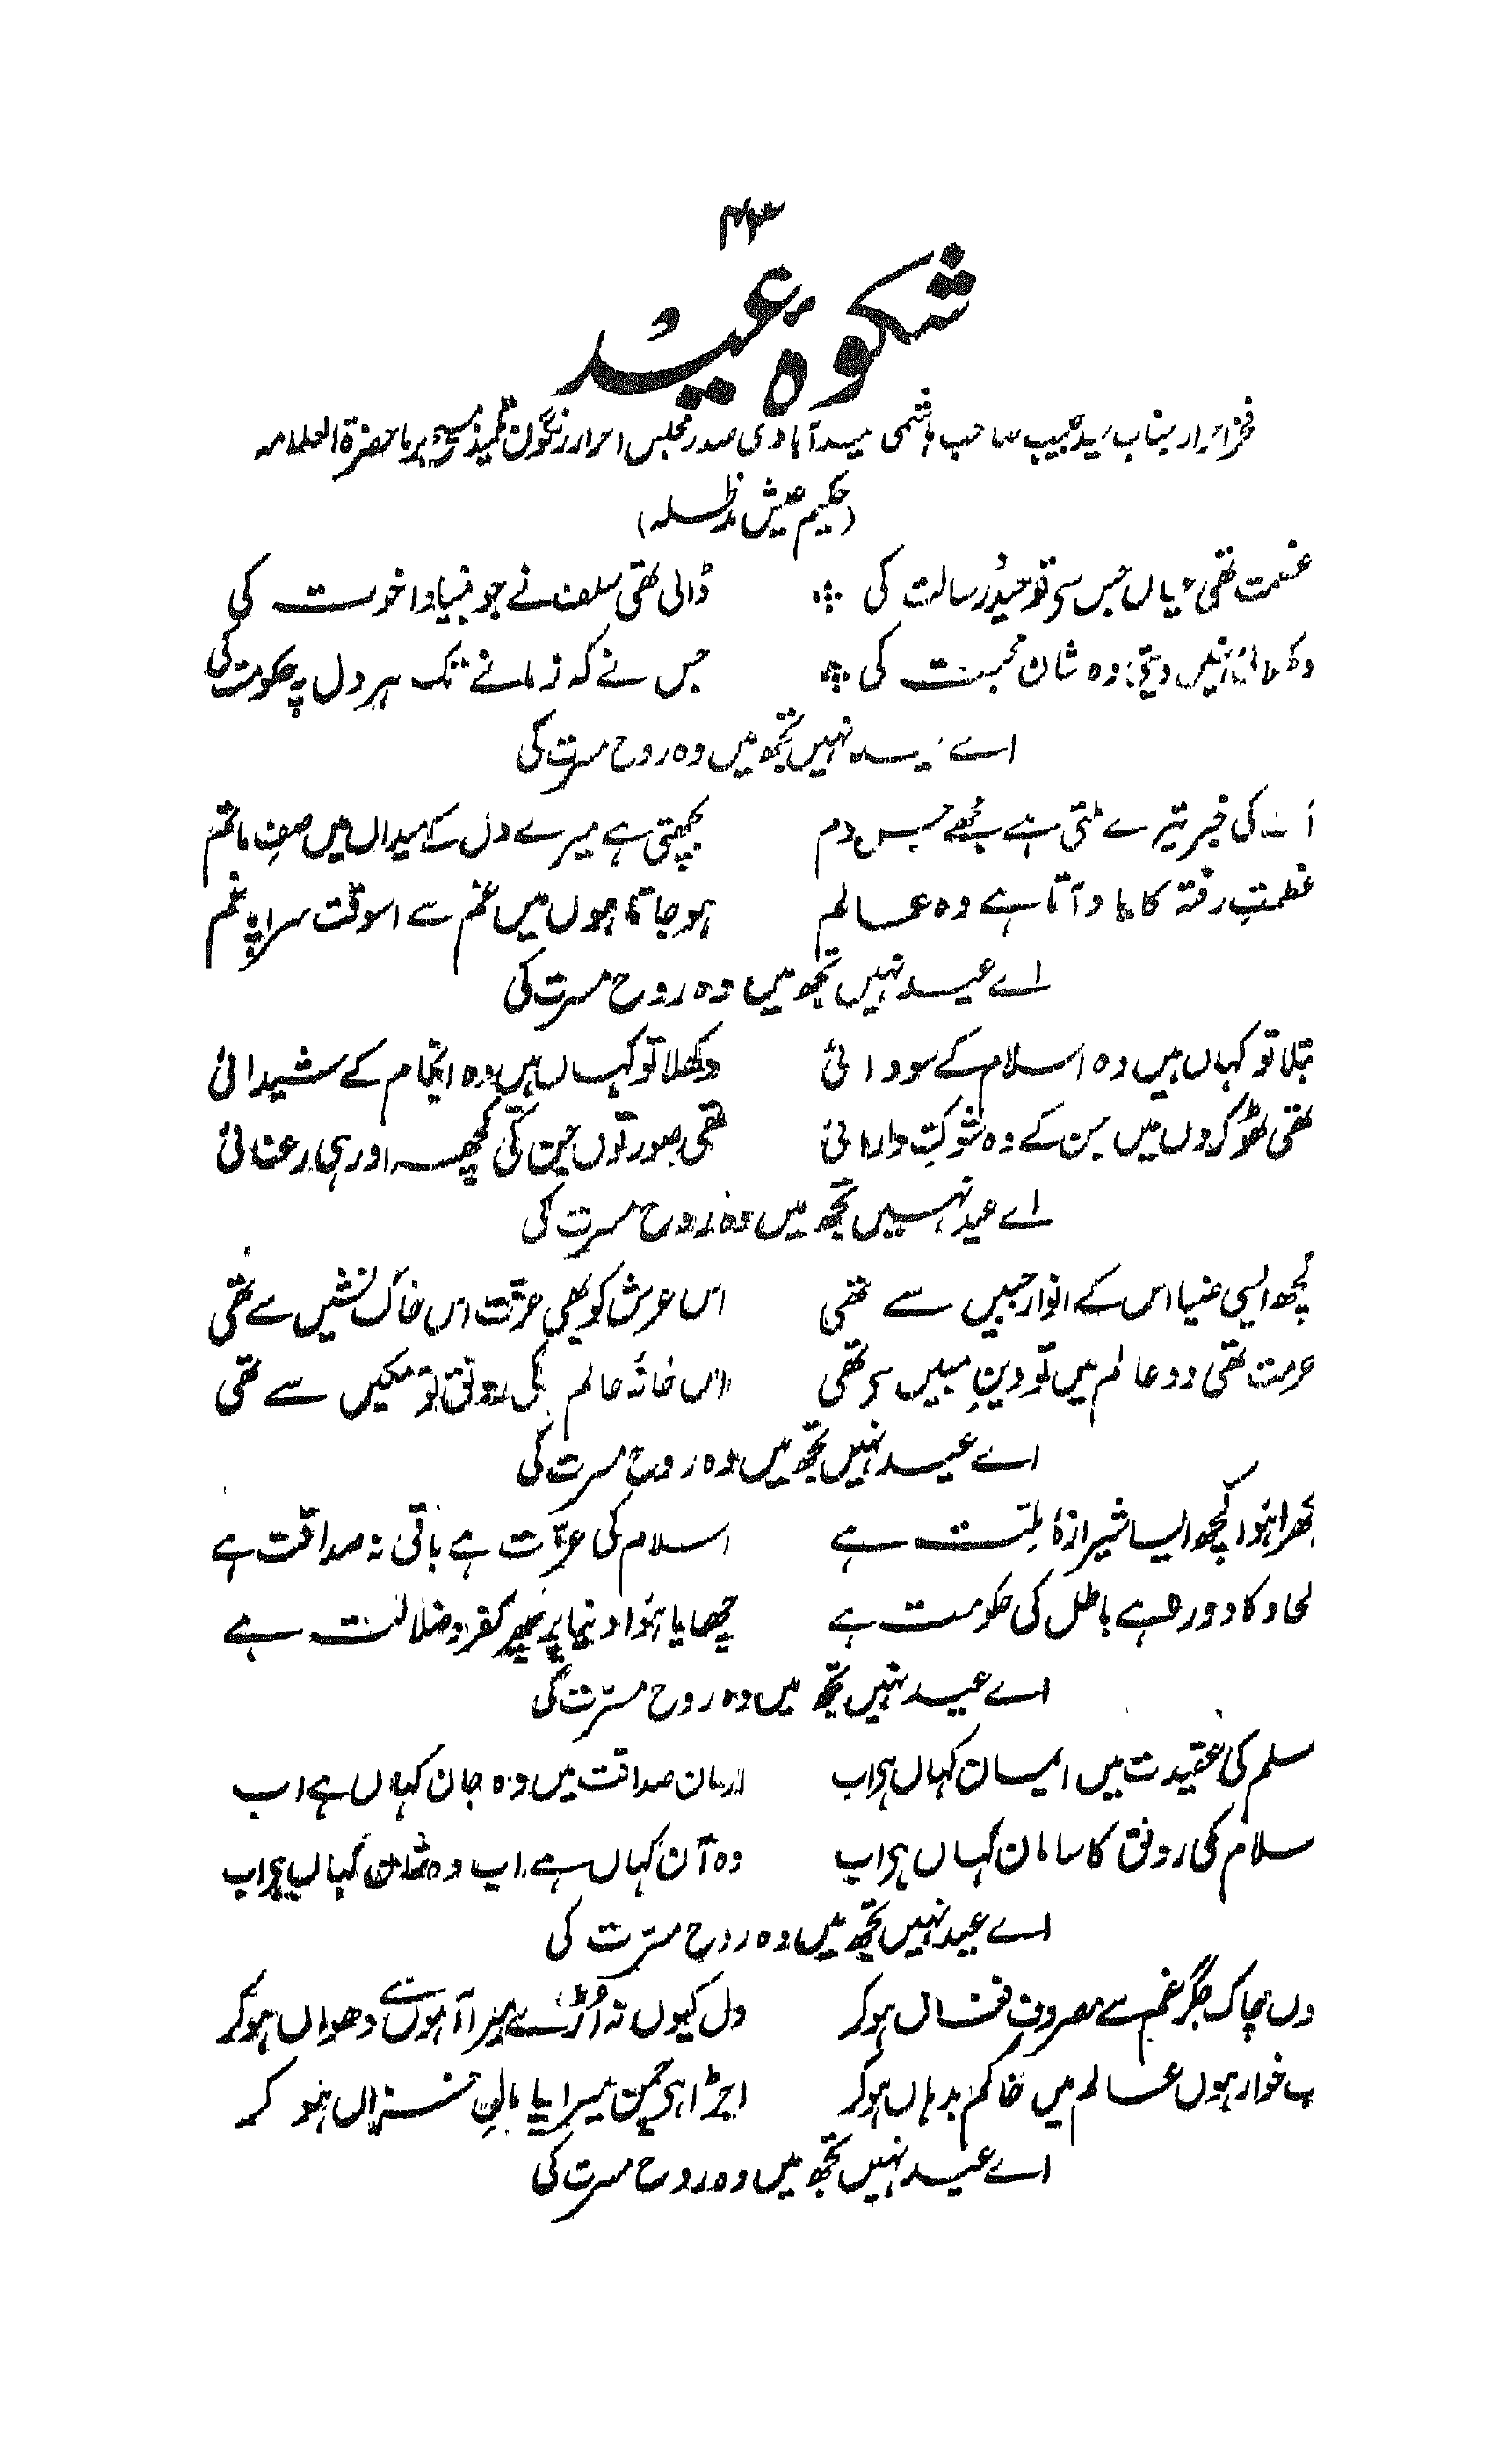 ۴۳
شکوۂ عید
فخر احرار جناب سید حبیب صاحب ہاشمی حیدآبادی صدر مجلس احرار رنگون تلمیذ مسیح برما حضرۃ العلامہ
(حکیم عیش مدظلہ)
عظمت تھی عیاں جس سی توحید رسالت کی ڈالی تھی سلف نے جو بنیاد اخوت کی
دکھلائی نہیں دیتی وہ شان محبت کی جس نے کہ زمانے تک ہر دل پہ حکومت کی
اے عید نہیں تجھ میں وہ روح مسرت کی
آنے کی خبر تیرے ملتی ہے مجھے جس دم بچھتی ہے میرے دل کے میداں میں صفِ ماتم
عظمتِ رفتہ کا یاد آتا ہے وہ عالم ہو جاتا ہوں میں غم سے اسوقت سراپہ غم
اے عید نہیں تجھ میں وہ روح مسرت کی
بتلا تو کہاں ہیں وہ اسلام کے سودائی دکھلا تو کہاں ہیں وہ انجام کے شیدائی
تھی ٹھوکروں میں جن کے وہ شوکتِ دارائی تھی صورتوں جن کی کچھ اور ہی رعنائی
اے عید نہیں تجھ میں وہ روح مسرت کی
کچھ ایسی ضیا اس کے انوار جبیں سے تھی اس عرش کو بھی عزت اس خاک نشیں سے تھی
حرمت تھی دو عالم میں تو دینِ مبیں سی تھی اس خانۂ عالم کی رونق تو مکیں سے تھی
اے عید نہیں تجھ میں وہ روح مسرت کی
بکھرا ہوا کچھ ایسا شیرازۂ ملت ہے اسلام کی عزّت ہے باقی نہ صداقت ہے
لحاد کا دور ہے باطل کی حکومت ہے چھایا ہوا دنیا پر پھر کفر و ضلالت ہے
اے عید نہیں تجھ میں وہ روح مسرّت کی
سلم کی عقیدت میں ایمان کہاں ہی اب ارمان صداقت میں وہ جان کہاں ہے اب
سلام کی رونق کا سامان کہاں ہی اب وہ آن کہاں ہے اب وہ شان کہاں ہی اب
اے عید نہیں تجھ میں وہ روح مسرّت کی
دل چاک جگر غم سے مصروفِ فغاں ہوکر دل کیوں نہ اُڑے میرا آہوں سے دھواں ہوکر
ب خوار ہوں عالم میں خاکم بدہاں ہوکر اجڑا ہی چمن میرا پامالِ خزاں ہو کر
اے عید نہیں تجھ میں وہ روح مسرت کی